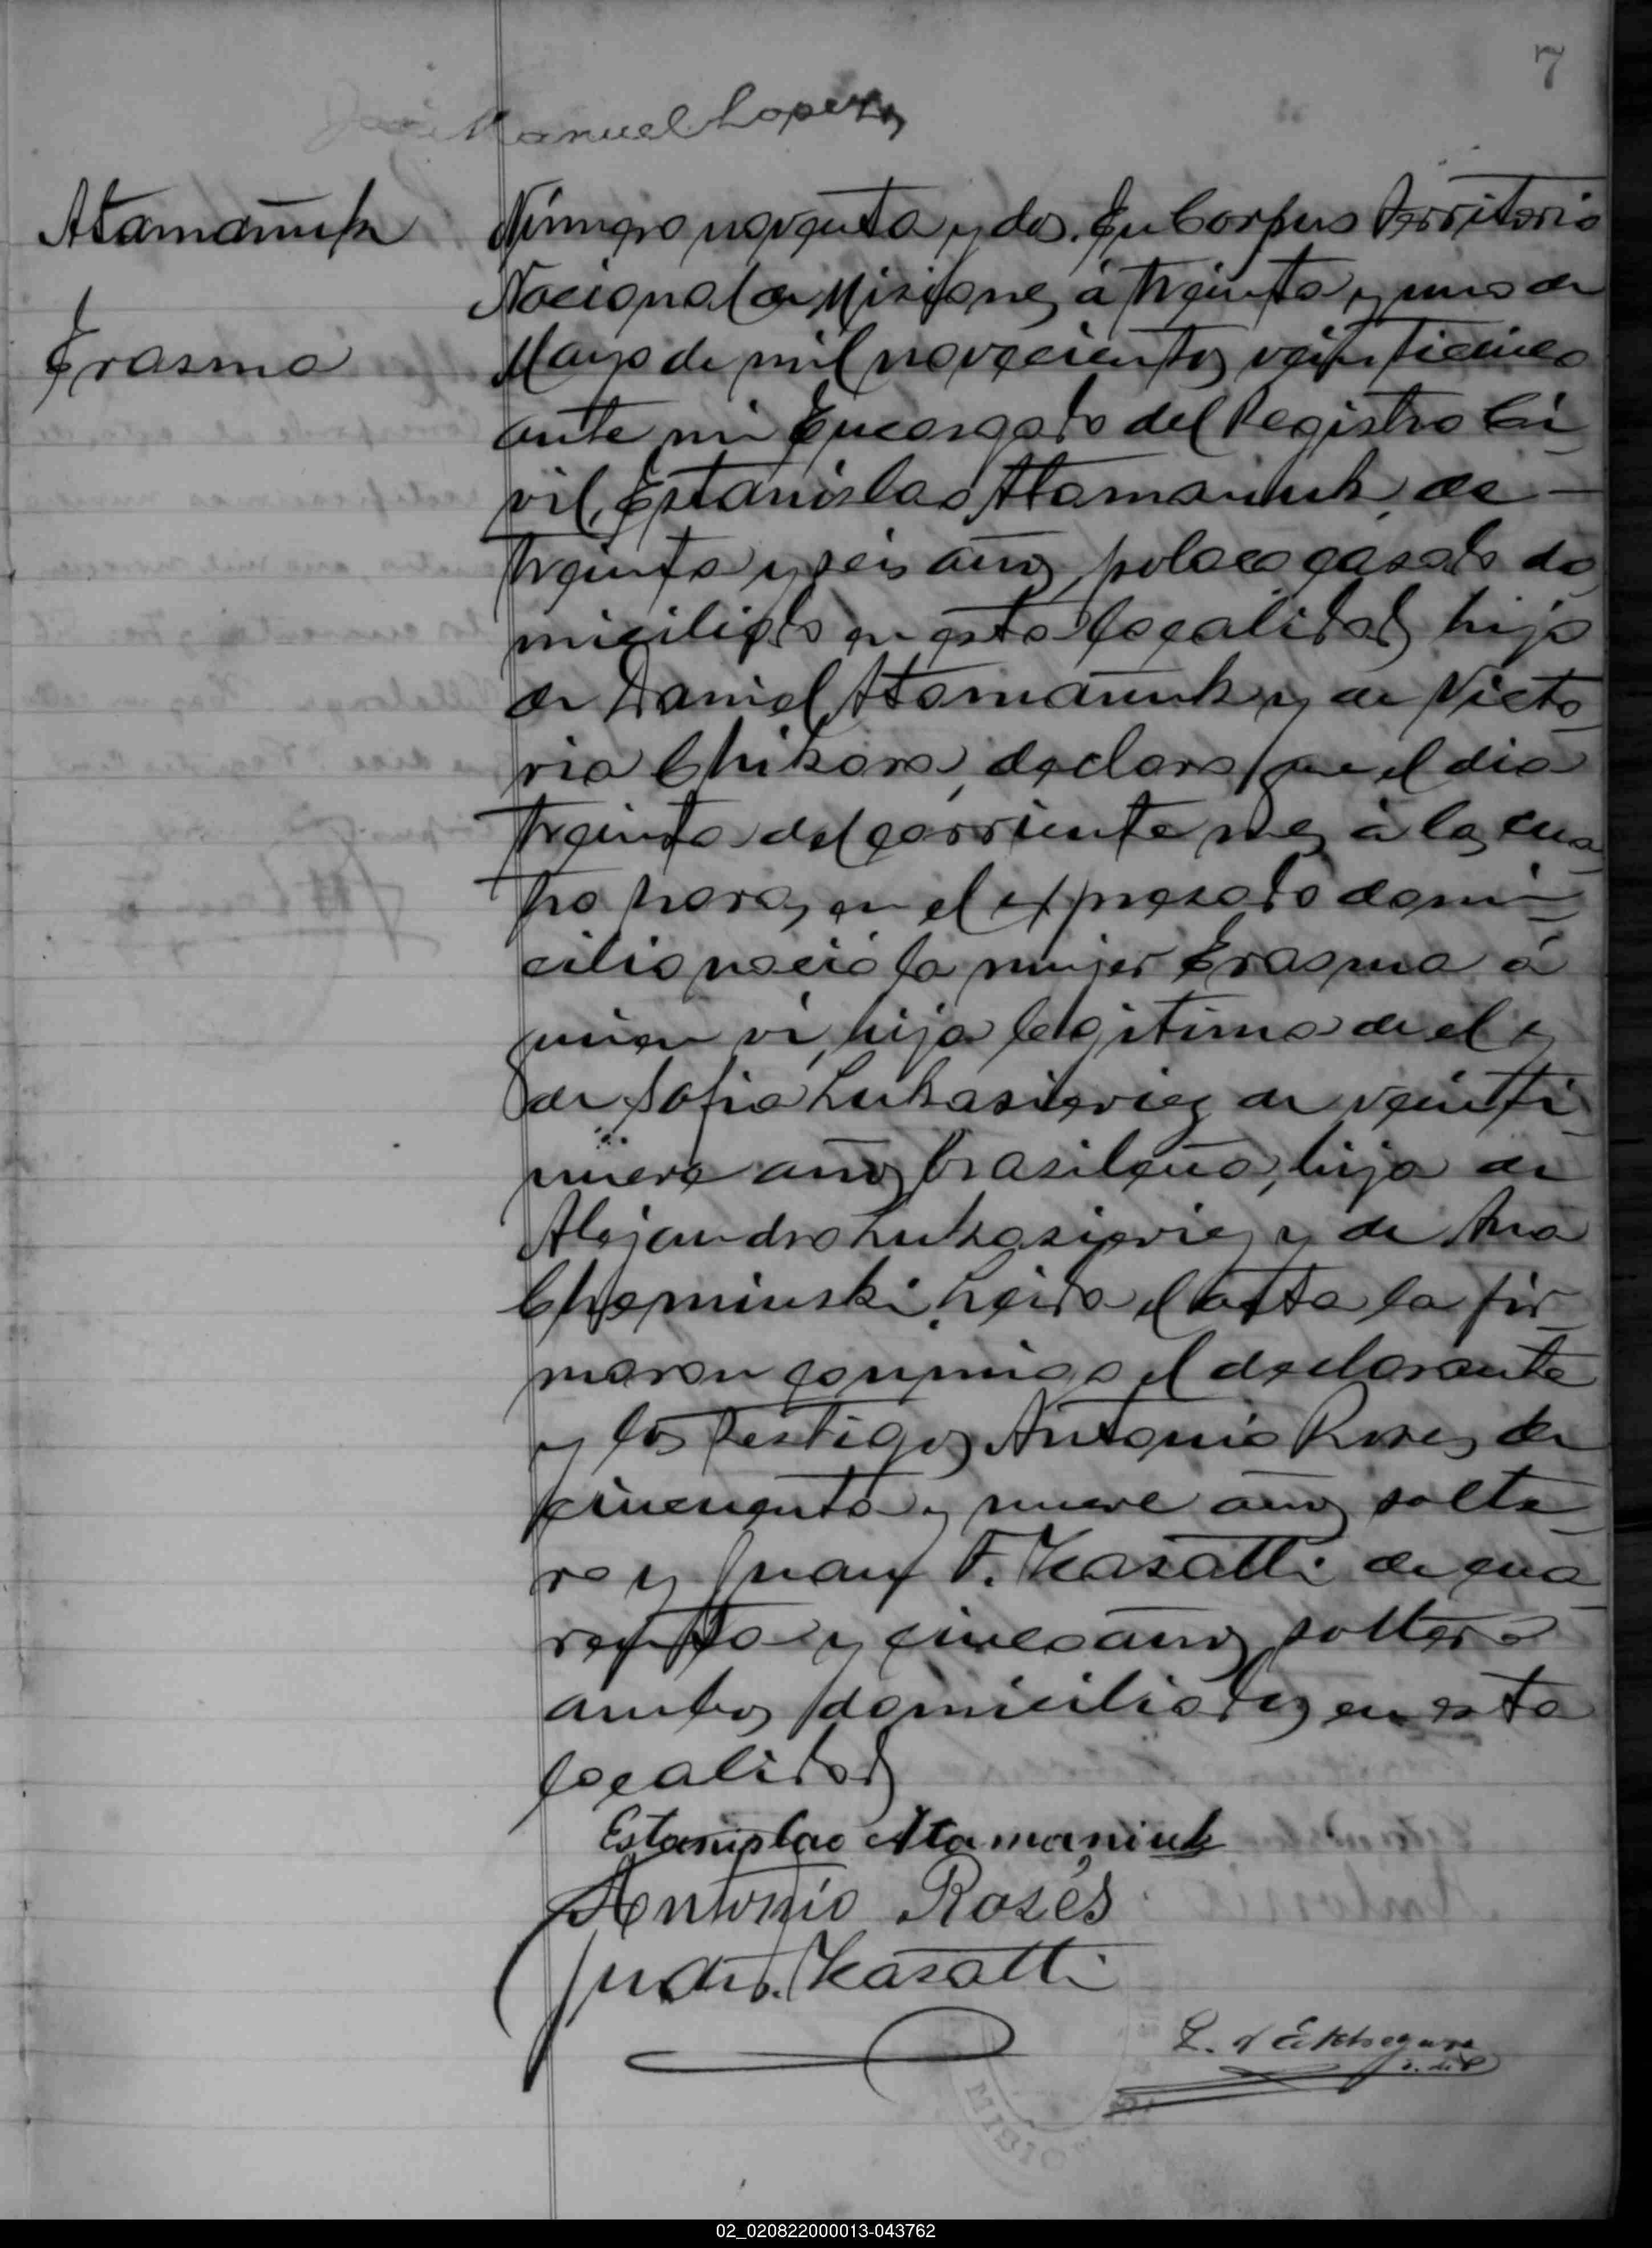 7
José Manuel Lopez
Atamañuk
Erasma
Número noventa y dos. En Corpus Territorio
Nacional de Misiones, á treinta y uno de
Mayo de mil novecientos veinticinco
ante mi Encargado del Registro Ci
vil, Estanislao Atamaniuk, de —
treinta y seis años, polaco casado do
miciliado en esta localidad, hijo
de Daniel Atamañuk y de Victo
ria Chikora, declara que el dia
treinta del corriente mes á las cua
tro horas, en el expresado domi
cilio nació la mujer Erasma á
quien vi, hija legitima de el y
de Sofia Lukasieviez de veinti
nueve años brasileña, hija de
Alejandro Lukasieviez y de Ana
Cheminski. Leida el acta la fir
maron conmigo el declarante
y los testigos Antonio Roses de
cincuenta y nueve años solte
ro y Juan F. Kasatti de cua
renta y cinco años soltero
ambos domiciliados en esta
localidad
Estanislao Atamaniuk
Antonio Rosés
Juan F. Kasatti
L. d'Etkhegaray
MISIO
02_020822000013-043762